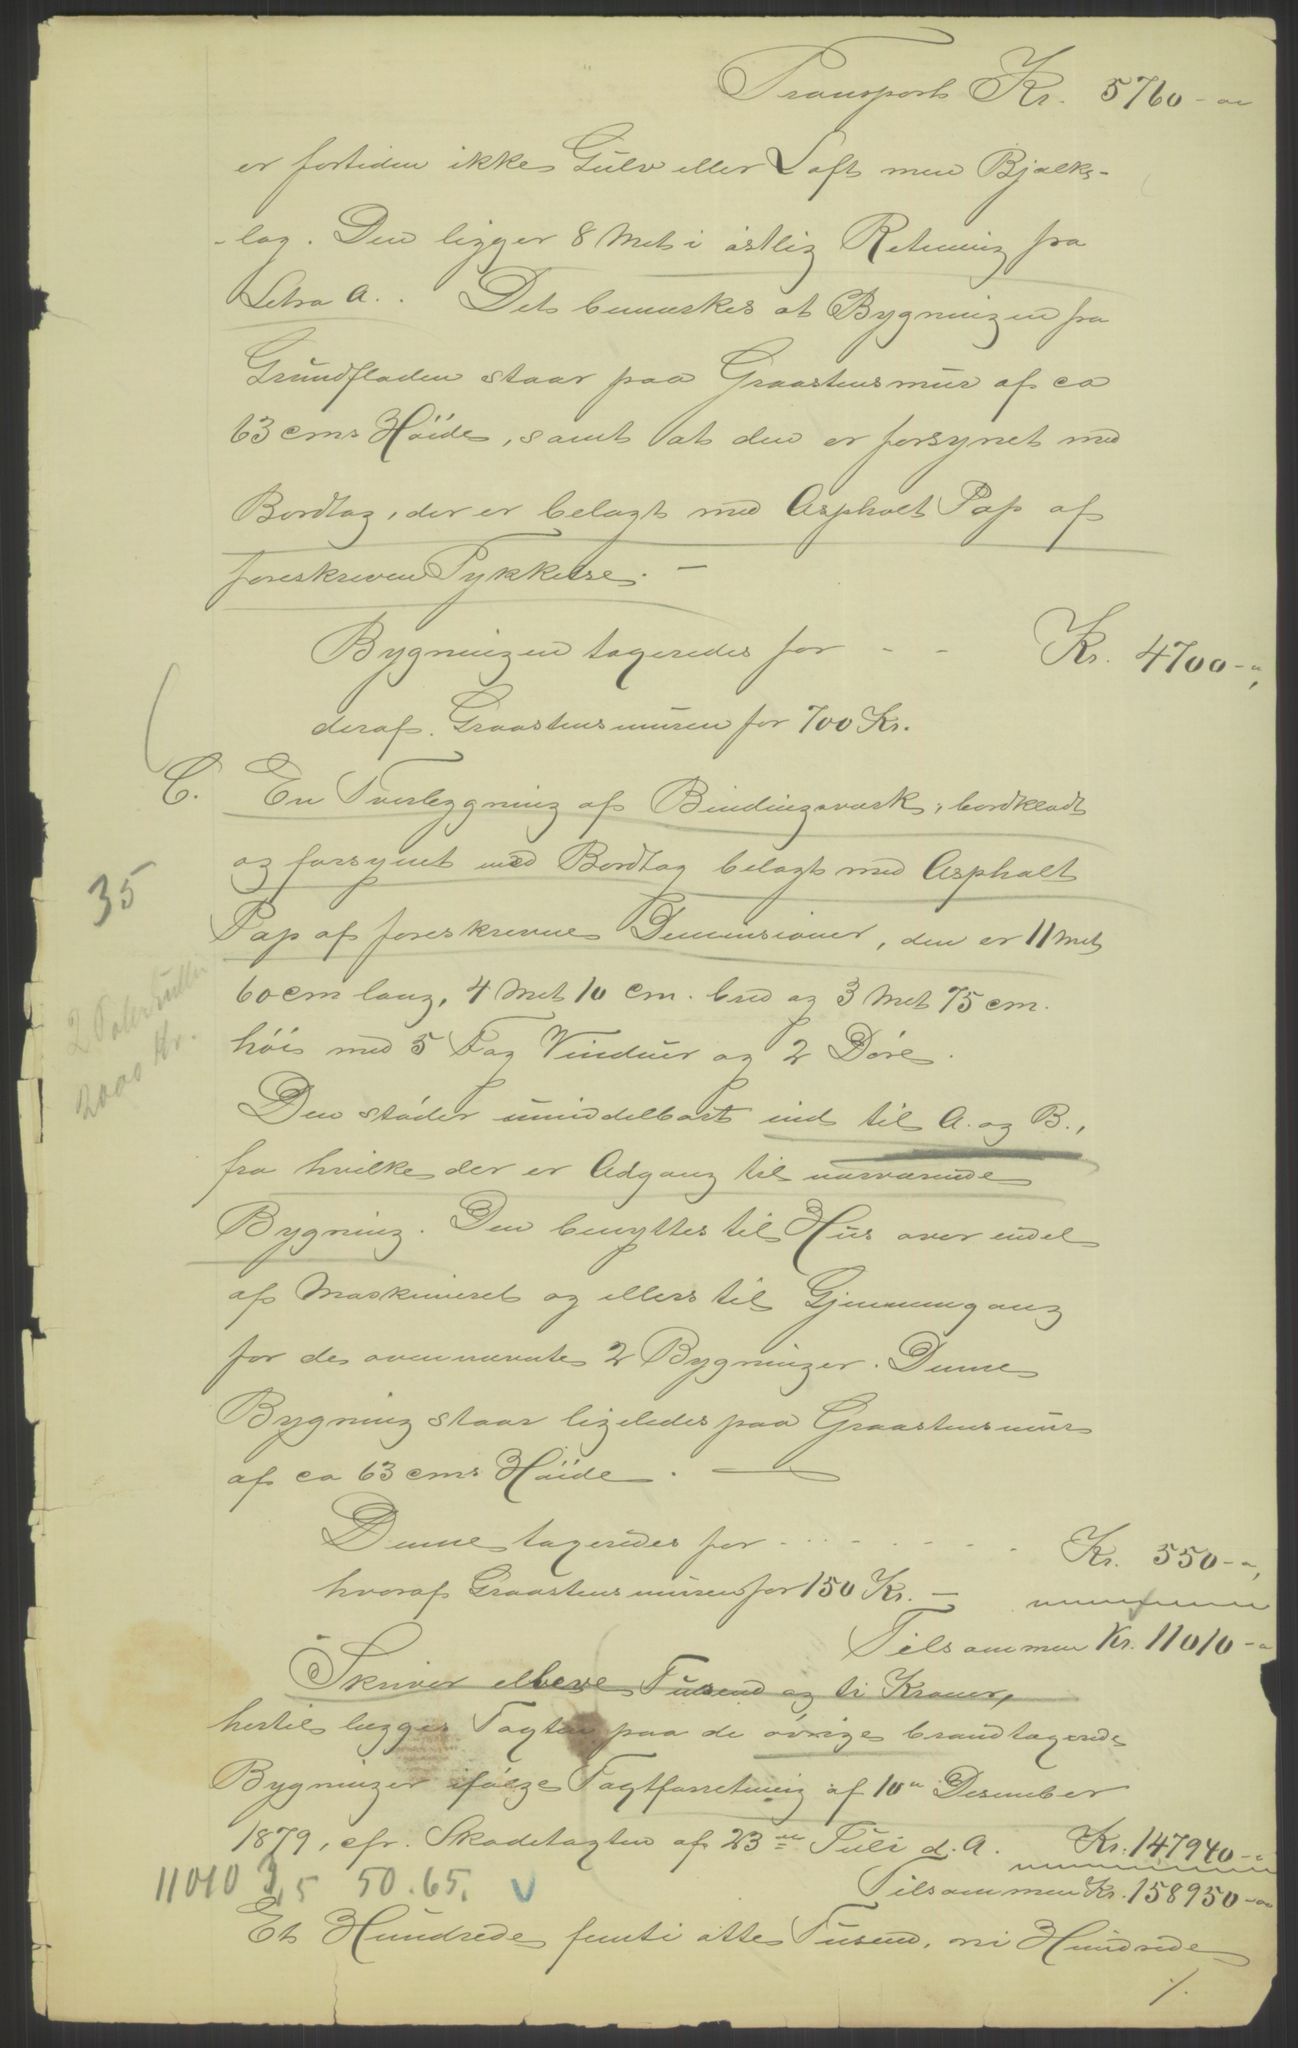 Transport Kr. 5760 - "
er fortiden ikke Gulv eller Loft men Bjælke-
- lag. Den ligger 8 Met i östlig Retning fra
Letra A. . Det bemærkes at Bygningen fra
Grundfladen staar paa Graastensmur af ca
63 cms Höide, samt at den er forsynet med
Bordtag, der er belagt med Asphalt Pap af
foreskreven Tykkelse. -
Bygningen taxeredes for - - Kr. 4700 - "
deraf. Graastensmuren for 700 Kr.
C. En Tverbygning af Bindingsværk, bordklædt
og forsynet med Bordtag belagt med Asphalt
35
Pap af foreskrevne Demensioner, den er 11 Met
60 cm lang, 4 Met 10 cm. bred og 3 Met 75 cm.
2000 Kr.
höi med 5 Fag Vinduer og 2 Döre.
Den stöder umiddelbart ind til A. og B.,
fra hvilke der er Adgang til nærværende
Bygning. Den benyttes til Hus over endel
af Maskineriet og ellers til Gjennemgang
for de ovennævnte 2 Bygninger. Denne
Bygning staar ligeledes paa Graastensmur
af ca 63 cms Höide. -
Denne taxeredes for - - - - - - Kr. 550 - "
hvoraf Graastensmuren for 150 Kr. -
Tilsammen Kr. 11010 - "
Skriver elleve Tusend og ti Kroner,
hertil lægges Taxten paa de övrige brandtaxerede
Bygninger ifölge Taxtforretning af 10de Desember
1879, cfr. Skadetaxten af 23de Juli d. A. Kr. 147940 - "
11010 3,5 50.65. Tilsammen Kr. 158950 - "
Et Hundrede femti otte Tusend, ni Hundrede
./.